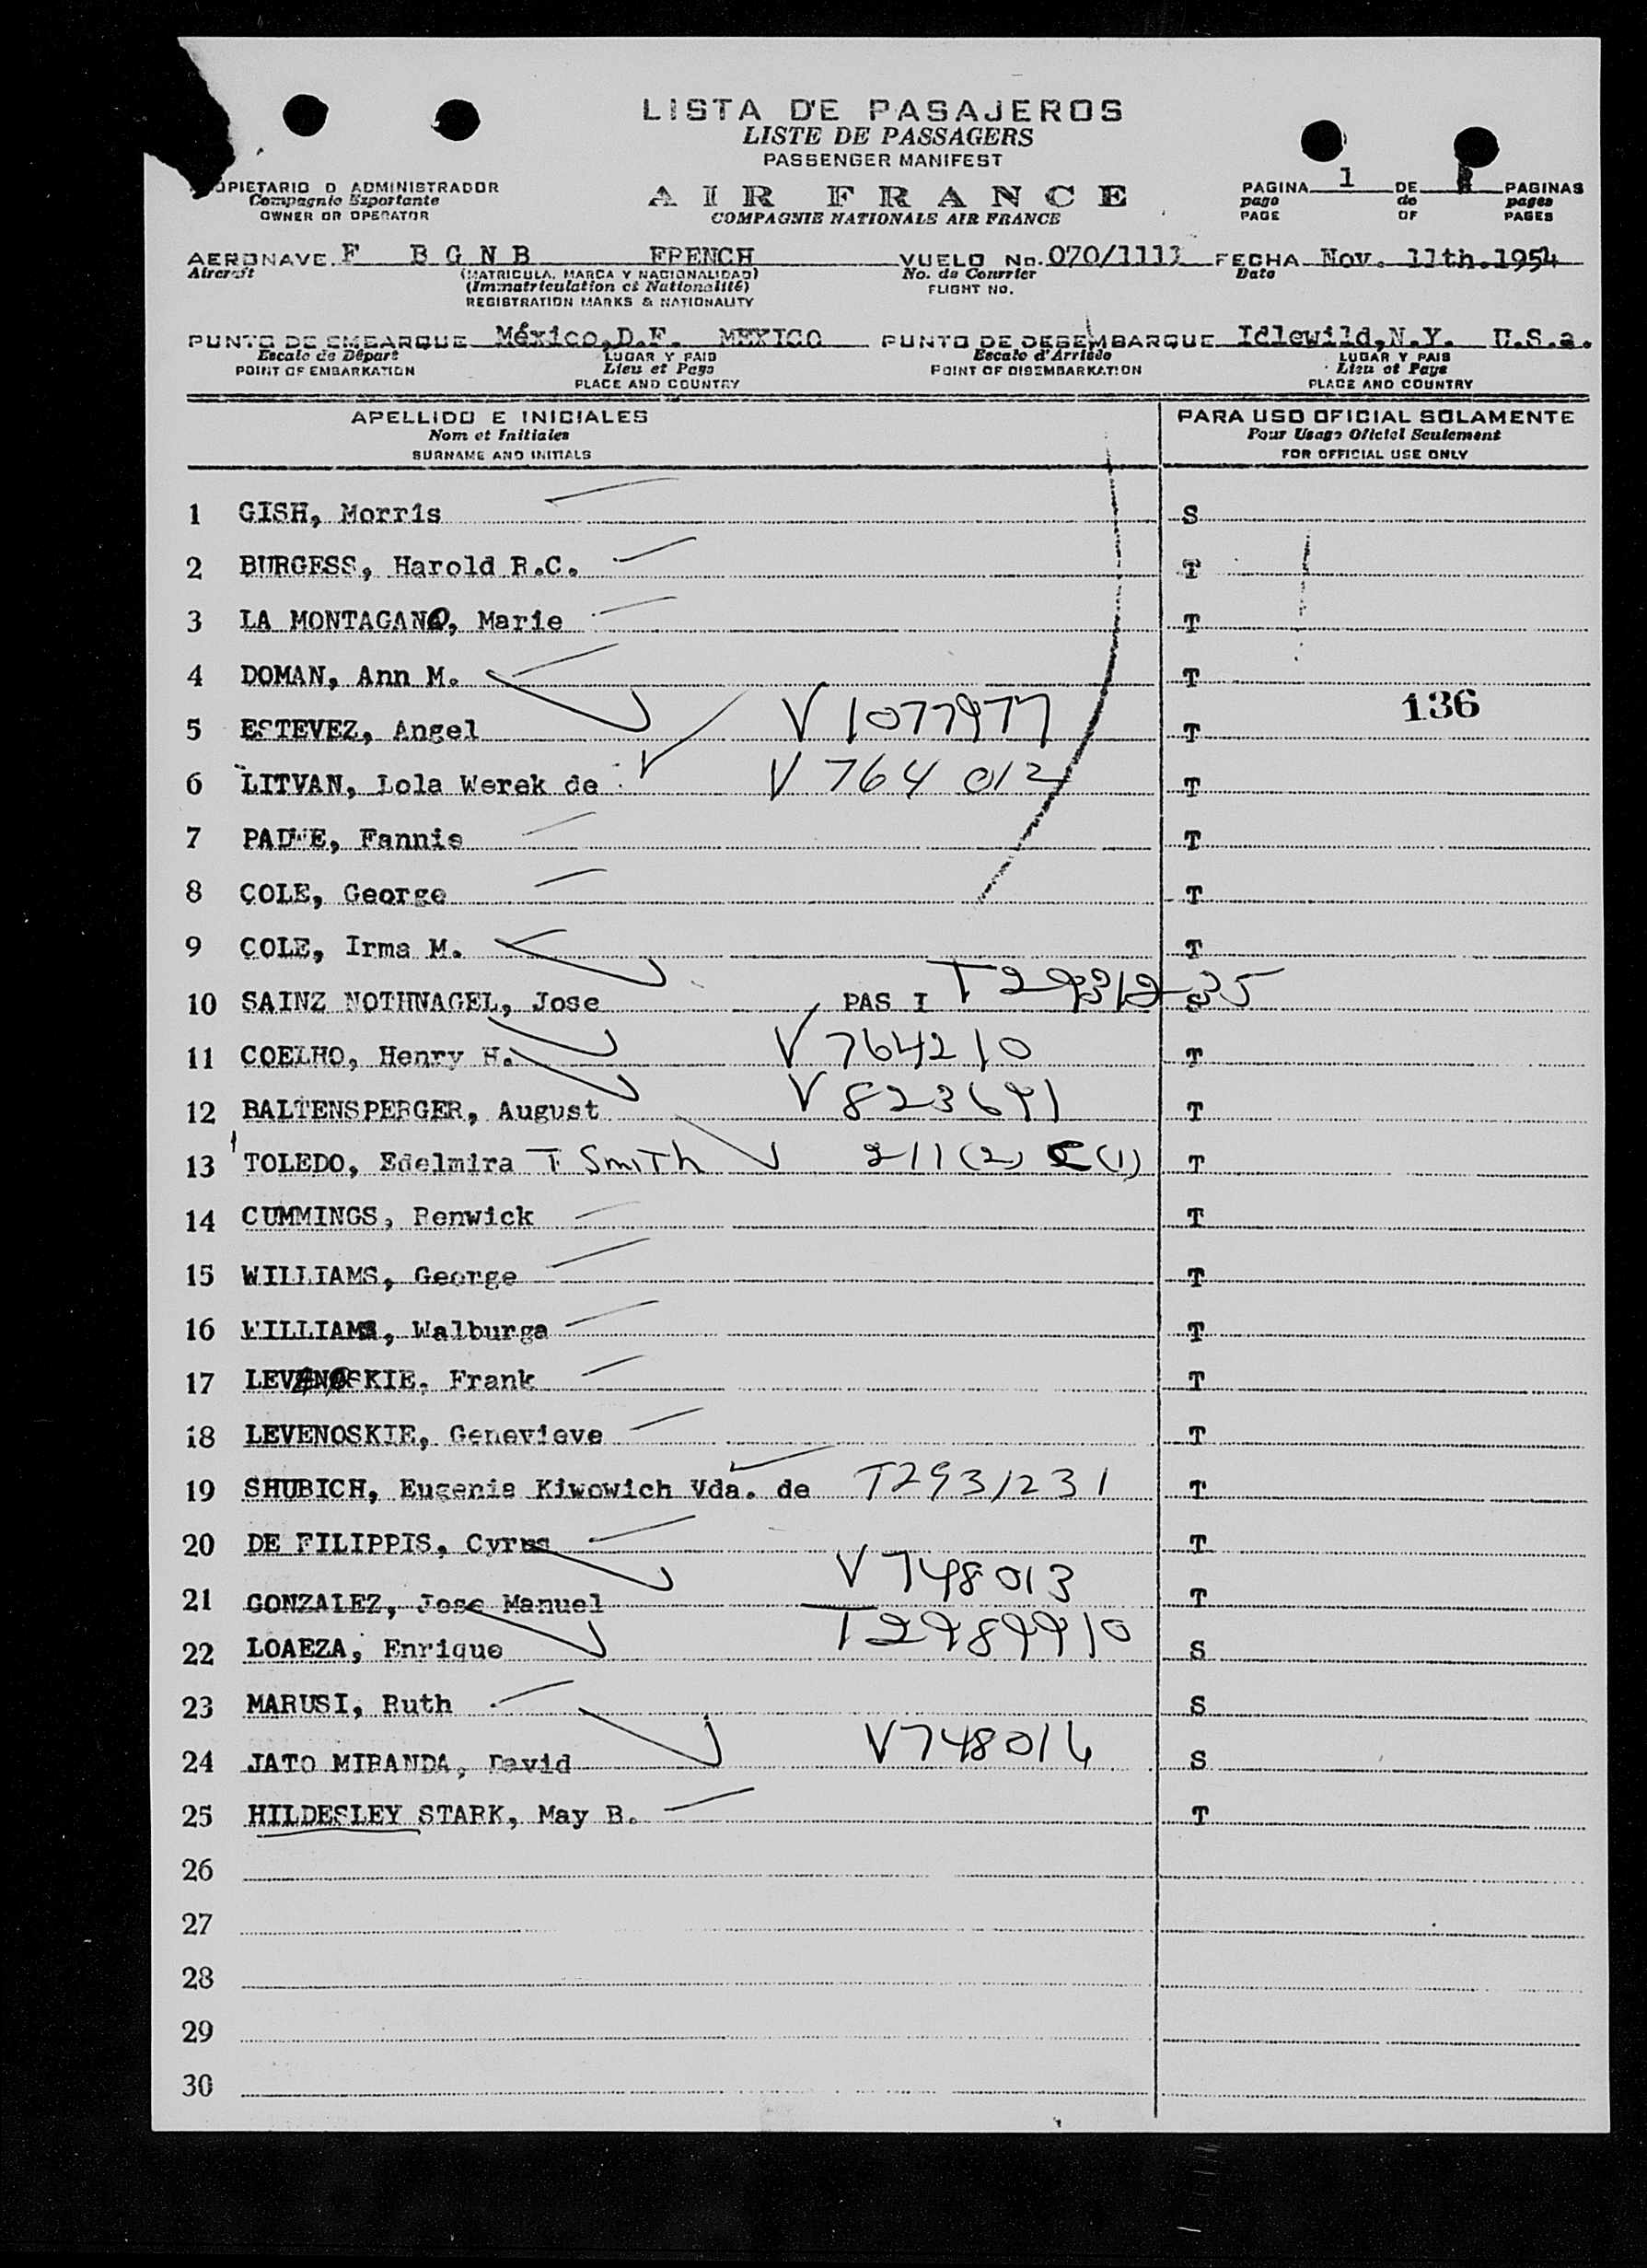 LISTA DE PASAJEROS
LISTE DE PASSAGERS
PASSENGER MANIFEST
AIR FRANCE
COMPAGNIE NATIONALE AIR FRANCE
OPIETARIO O ADMINISTRADOR
Compagnie Exportante
OWNER OR OPERATOR
PAGINA 1 DE PAGINAS
page de pages
PAGE OF PAGES
AERONAVE F B G N B FRENCH VUELO No. 070/1111 FECHA Nov. 11th.1954
Aircraft (MATRICULA, MARCA Y NACIONALIDAD) No. de Courrier Date
(Immatriculation et Nationalité) FLIGHT NO.
REGISTRATION MARKS & NATIONALITY
PUNTO DE EMBARQUE México,D.F. MEXICO PUNTO DE DESEMBARQUE Idlewild,N.Y. U.S.a.
Escale de Départ LUGAR Y PAIS Escale d'Arrivée LUGAR Y PAIS
POINT OF EMBARKATION Lieu et Pays POINT OF DISEMBARKATION Lieu et Pays
PLACE AND COUNTRY PLACE AND COUNTRY
APELLIDO E INICIALES PARA USO OFICIAL SOLAMENTE
Nom et Initiales Pour Usage Officiel Seulement
SURNAME AND INITIALS FOR OFFICIAL USE ONLY
1 GISH, Morris S
2 BURGESS, Harold R.C. T
3 LA MONTAGANO, Marie T
4 DOMAN, Ann M. T
136
5 ESTEVEZ, Angel V 1077977 T
6 LITVAN, Lola Werek de V 764 012 T
7 PADWE, Fannie T
8 COLE, George T
9 COLE, Irma M. T
10 SAINZ NOTHNAGEL, Jose PAS I S
11 COELHO, Henry H. V 764210 T
12 BALTENSPERGER, August V 823691 T
13 TOLEDO, Edelmira T Smith 211(2) C(1) T
14 CUMMINGS, Renwick T
15 WILLIAMS, George T
16 WILLIAMS, Walburga T
17 LEVENOSKIE, Frank T
18 LEVENOSKIE, Genevieve T
19 SHUBICH, Eugenia Kiwowich Vda. de T2931231 T
20 DE FILIPPIS, Cyrus T
21 GONZALEZ, Jose Manuel V 748013 T
22 LOAEZA, Enrique T2989910 S
23 MARUSI, Ruth S
24 JATO MIRANDA, David V748016 S
25 HILDESLEY STARK, May B. T
26
27
28
29
30